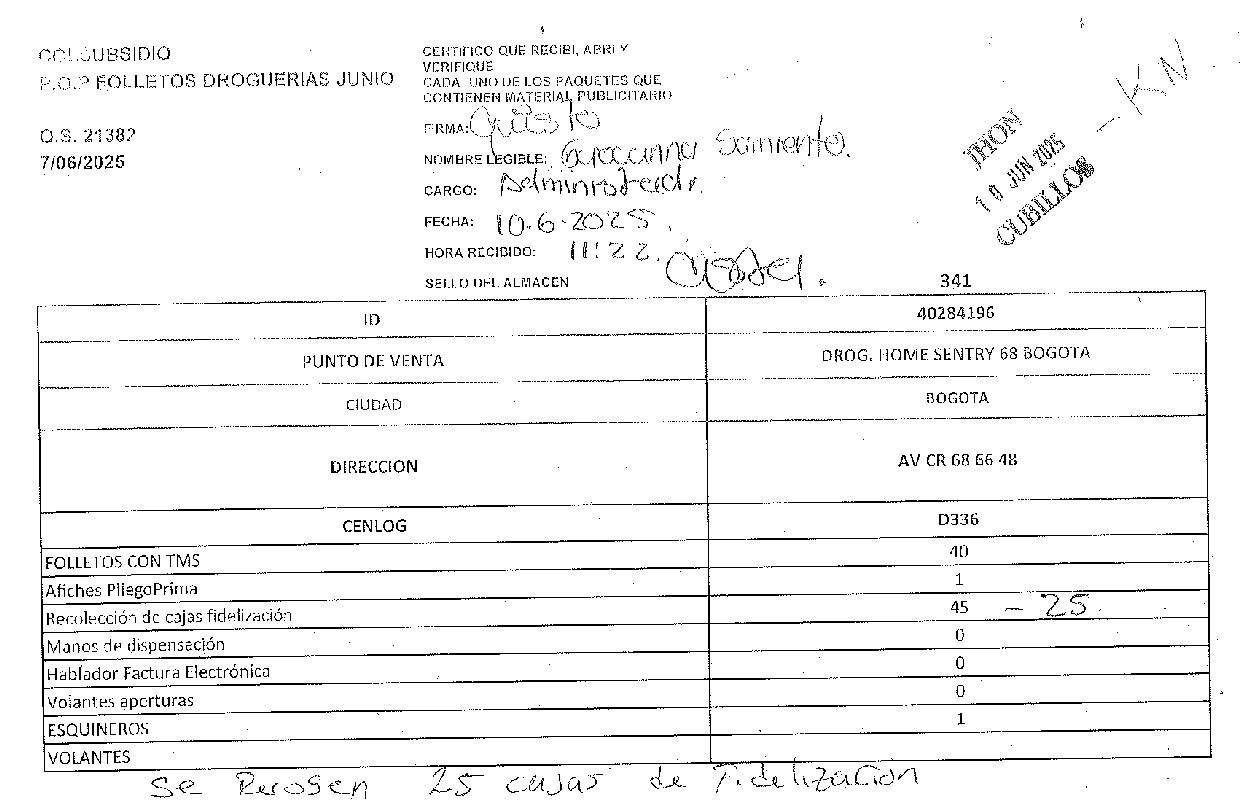 COLSUBSIDIO
P.O.P FOLLETOS DROGUERIAS JUNIO
O.S. 21382
7/06/2025
CERTIFICO QUE RECIBI, ABRI Y
VERIFIQUE
CADA UNO DE LOS PAQUETES QUE
CONTIENEN MATERIAL PUBLICITARIO
FIRMA:
NOMBRE LEGIBLE: Sarmiento.
CARGO: Administrador.
FECHA: 10-6-2025.
HORA RECIBIDO: 11:22.
SELLO DEL ALMACEN
JHON
10 JUN 2025
CUBILLOS
- KN
341
ID 40284196
PUNTO DE VENTA DROG. HOME SENTRY 68 BOGOTA
CIUDAD BOGOTA
DIRECCION AV CR 68 66 48
CENLOG D336
FOLLETOS CON TMS 40
Afiches PliegoPrima 1
Recolección de cajas fidelización 45 - 25
Manos de dispensación 0
Hablador Factura Electrónica 0
Volantes aperturas 0
ESQUINEROS 1
VOLANTES
Se Recogen 25 cajas de Fidelización